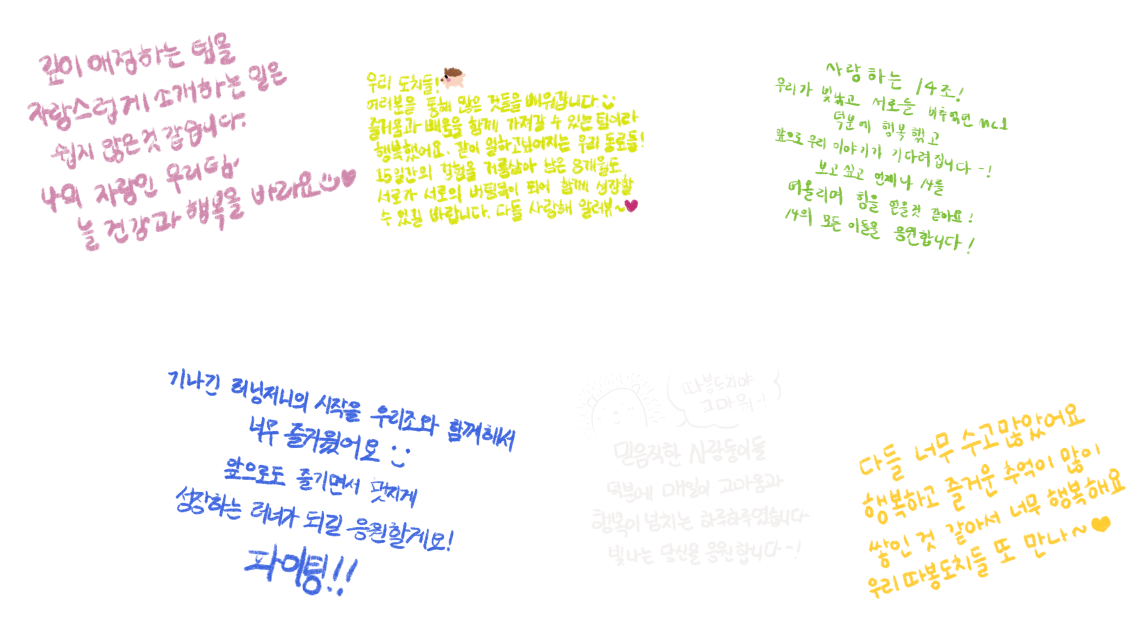 깊이 애정하는 팀을
자랑스럽게 소개하는 일은
쉽지 않은것 같습니다.
나의 자랑인 우리팀
늘 건강과 행복을 바라요
우리 도치들!
여러분을 통해 많은 것들을 배워갑니다
즐거움과 배움을 함께 가져갈 수 있는 팀이라
행복했어요. 같이 일하고싶어지는 우리 동료들!
15일간의 경험을 거름삼아 남은 8개월도
서로가 서로의 버팀목이 되어 함께 성장할
수 있길 바랍니다. 다들 사랑해 알러뷰~
사랑하는 14조!
우리가 빛났고 서로를 비추었던
덕분에 행복했고
앞으로 우리 이야기가 기다려집니다~!
보고싶고 언제나 14를
떠올리며 힘을 얻을것 같아요!
14의 모든 이들을 응원합니다!
기나긴 러닝저니의 시작을 우리조와 함께해서
너무 즐거웠어요
앞으로도 즐기면서 멋지게
성장하는 러너가 되길 응원할게요!
파이팅!!
따봉도치야
고마워~!
믿음직한 사랑둥이들
덕분에 매일이 고마움과
행복이 넘치는 하루하루였습니다
빛나는 당신을 응원합니다~!
다들 너무 수고많았어요
행복하고 즐거운 추억이 많이
쌓인 것 같아서 너무 행복해요
우리 따봉도치들 또 만나~